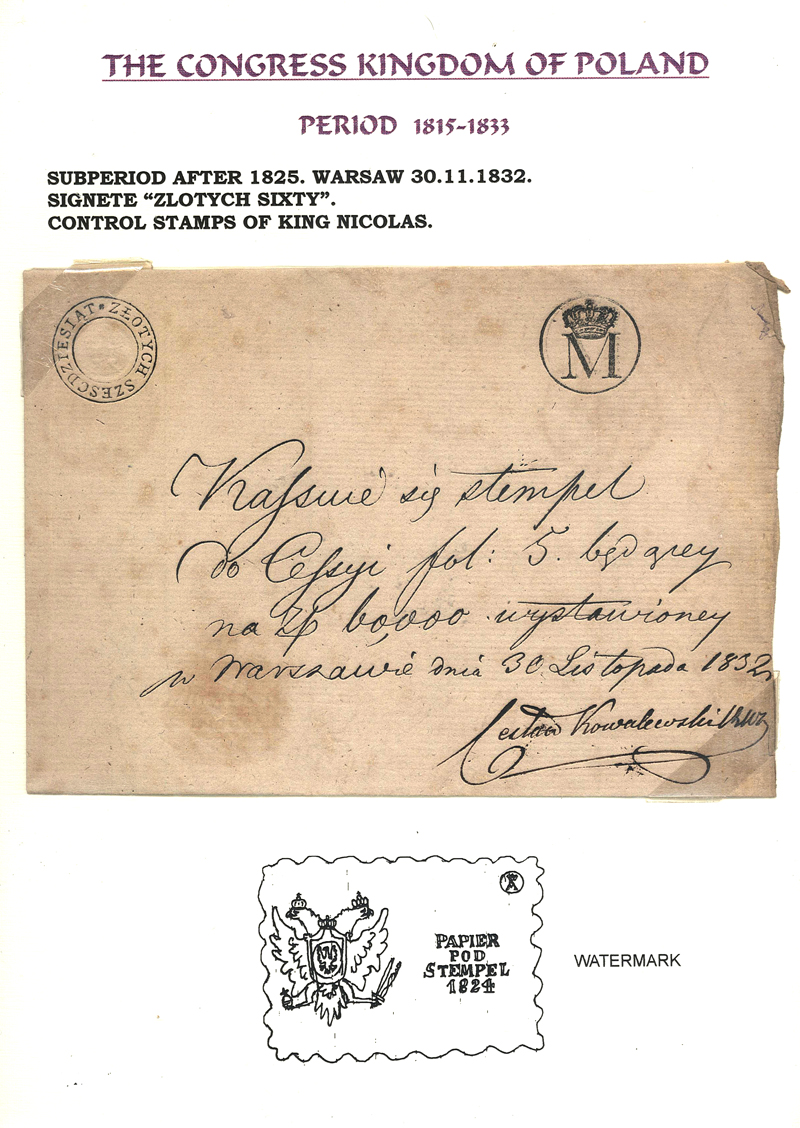 THE CONGRESS KINGDOM OF POLAND
PERIOD 1815-1833
SUBPERIOD AFTER 1825. WARSAW 30.11.1832.
SIGNETE “ZLOTYCH SIXTY”.
CONTROL STAMPS OF KING NICOLAS.
ZŁOTYCH SZESCDZIESIAT
M
Kassuie się stempel
do Cessyi fol: 5. będącey
na Zł 60,000 wystawioney
w Warszawie dnia 30 Listopada 1832
Czesław Kowalewski
PAPIER
POD
STEMPEL
1824
WATERMARK